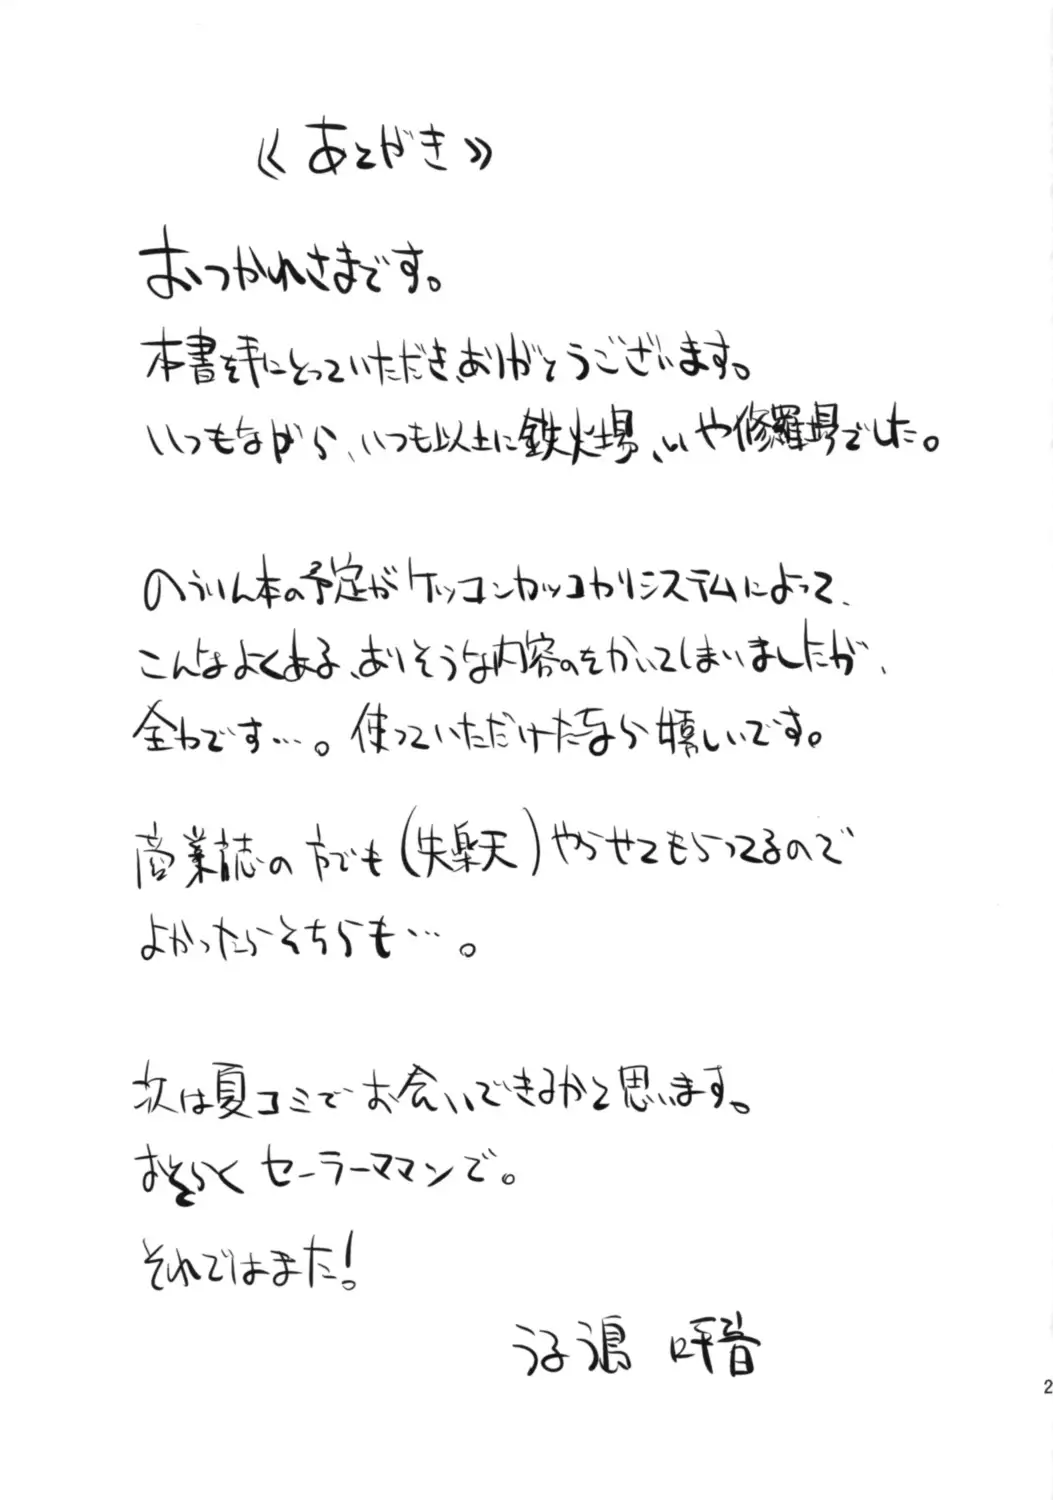 《あとがき》
おつかれさまです。
本書を手にとっていただき、ありがとうございます。
いつもながら、いつも以上に鉄火場、いや修羅場でした。
のうりん本の予定がケッコンカッコカリシステムによって、
こんなよくある、ありそうな内容のをかいてしまいましたが、
全力です…。使っていただけたなら嬉しいです。
商業誌の方でも(失楽天)やらせてもらってるので
よかったらそちらも…。
次は夏コミでお会いできるかと思います。
おそらくセーラーママンで。
それではまた!
うるう島 呼音
2